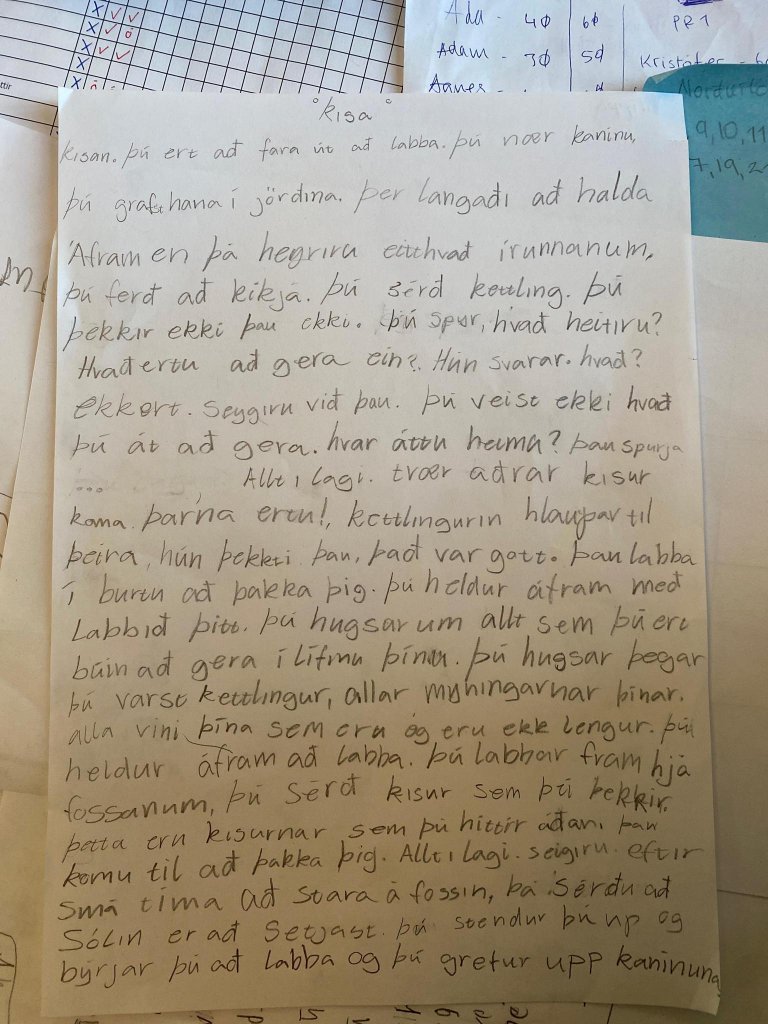 Ada - 40 60 PR1
Adam - 30 50 Kristófer - 6
Agnes -
Norðurlö
9, 10, 11
7, 19, 2
° kisa °
kisan. þú ert að fara út að labba. þú nær kaninu,
þú grafst hana í jörðina. þer langaði að halda
Áfram en þá heyriru eitthvað írunnanum,
þú ferð að kikja. þú sérð kettling. þú
þekkir ekki þau ekki. þú spur, hvað heitiru?
Hvað ertu að gera ein? Hún svarar. hvað?
ekkert. seygiru við þau. þú veist ekki hvað
þú át að gera. hvar áttu heima? þau spurja
... Allt í lagi. tvær aðrar kisur
koma. þarna ertu!, kettlingurin hlaupar til
þeira, hún þekkti þau, það var gott. þau labba
í burtu að þakka þig. þú heldur áfram með
Labbið þitt. þú hugsar um allt sem þú ert
búin að gera í lífinu þínu. þú hugsar þegar
þú varst kettlingur, allar myningarnar þinar.
alla vini þína sem eru og eru ekk lengur. þú
heldur áfram að labba. þú labbar fram hjá
fossanum, þú sérð kisur sem þú þekkir.
þetta eru kisurnar sem þú hittir áðan. þau
komu til að þakka þig. Allt í lagi. seigiru. eftir
smá tíma að stara á fossin, þá sérðu að
Sólin er að setjast. þú stendur þú up og
býrjar þú að labba og þú grefur upp kaninuna